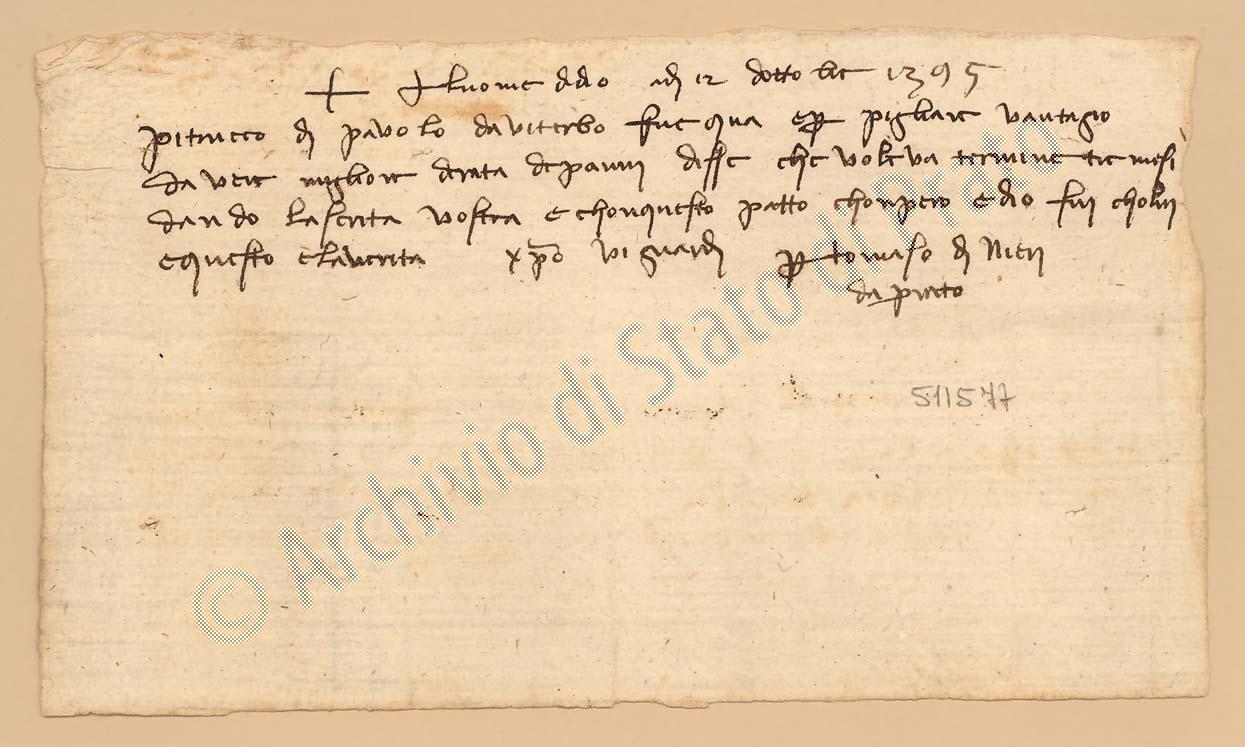 + Al nome di dio adi 12 dottobre 1395
pitruccio di pavolo da viterbo fue qua e per pigliare vantagio
davere migliore derata de panni disse che voleva termine tre mesi
dando la scrita vostra e chon questo patto chonpero ed io fui cholui
e questo e la verita xpo vi guardi per tomaso di Nieri
da prato
511577
© Archivio di Stato di Prato